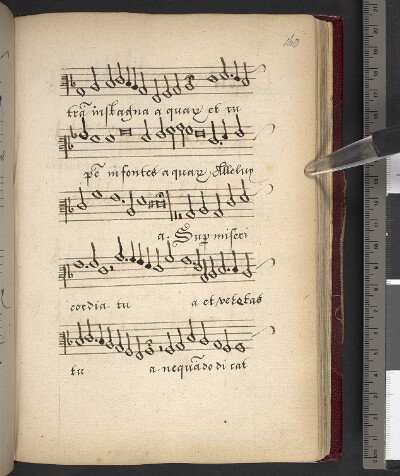 140
trā in stagna a quaꝝ et ru
pē in fontes a quaꝝ Alleluy
a. Sup miseri
cordia tu a et veritas
tu a. nequādo di cāt